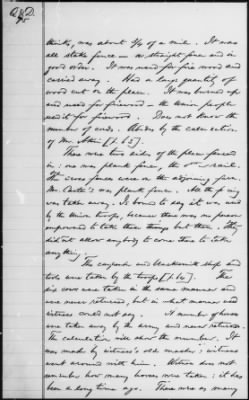 think, was about 3/4 of a mile. It was
all stake fence – no straight fence and in
good order. It was used for fire wood and
carried away. Had a large quantity of
wood cut on the place. It was burned up
and used for firewood – the Union people
used it for firewood. Does not know the
number of cords. Abides by the calculation
of Mr.
There were two sides of the place fenced
in: one was plank fence, the
The cross fences were on the adjoining farm.
Mr. Custis's was plank fence. All the
was taken away. Is bound to say it was used
by the Union troops, because there was no person
empowered to take these things but them. They
did not allow anybody to come there to take
anything.
The carpenter and blacksmith shop and
tools were taken by the troops The
six cows were taken in the same manner and
were never returned, but in what manner said
witness could not say. A number of horses
were taken away by the army and never returned.
The calculation will show the number. It
was made by witness's old master; witness
went around with him. Witness does not
remember how many horses were taken; it has
been a long time ago. There were as many